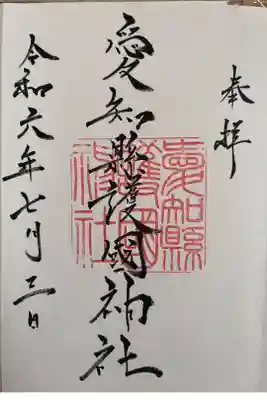 奉拜
愛知縣護國神社
愛知縣護國神社
令和六年七月三日